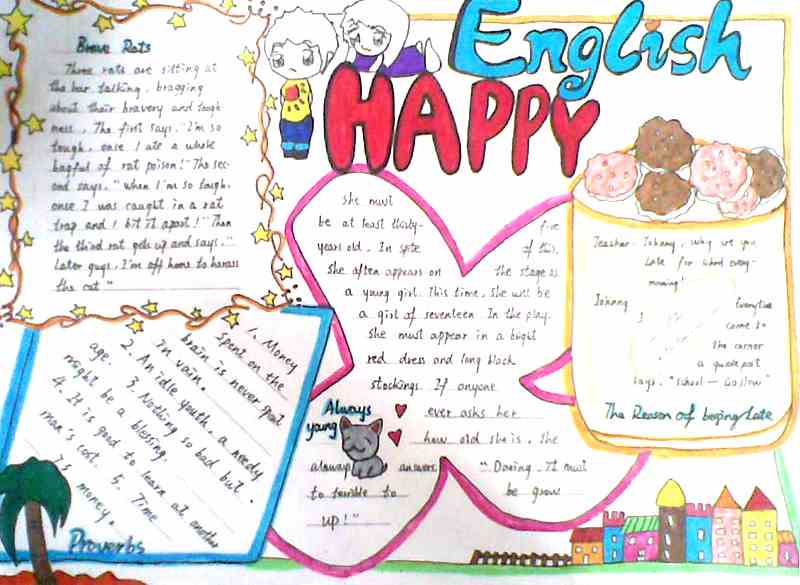 English
HAPPY
Brave Rats
Three rats are sitting at
the bar talking, bragging
about their bravery and tough-
ness. The first says, "I'm so
tough, once I ate a whole
bagful of rat poison!" The sec-
ond says, "When I'm so tough,
once I was caught in a rat
trap and I bit it apart!" Then
the third rat gets up and says,"
Later guys, I'm off home to harass
the cat"
She must
be at least thirty- five
years old. In spite of this,
She often appears on the stage as
a young girl. This time, She will be
a girl of seventeen. In the play,
She must appear in a bright
red dress and long black
stockings. If anyone
ever asks her
how old she is, She
always answers,
"Daring, It must
to terrible to be grow
up!"
Always
young
Teacher: Johnny, why are you
late for school every-
morning?
Johnny
Everytime
I come to
the corner
a guidepost
says, "School — Go Slow"
The Reason of beging late
1. Money
spent on the
brain is never spent
in vain.
2. An idle youth, a needy
age.
3. Nothing so bad but
might be a blessing.
4. It is good to learn at another
man's cost.
5. Time
is money.
Proverbs